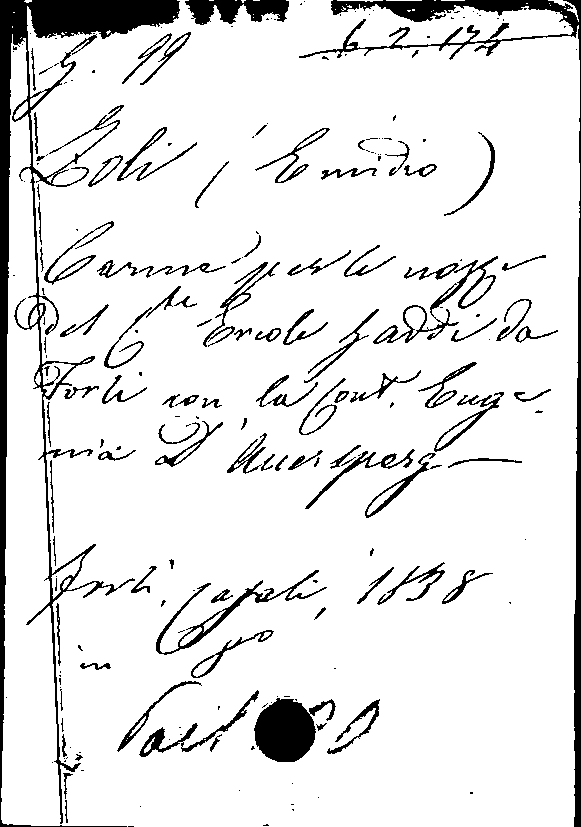 G. 99 6.2.174
Zoli (Emidio)
Carme per le nozze
del C.te Ercole Gaddi da
Forlì con la Cont. Euge-
nia D'Auersperg
Forlì, Casali, 1838
in